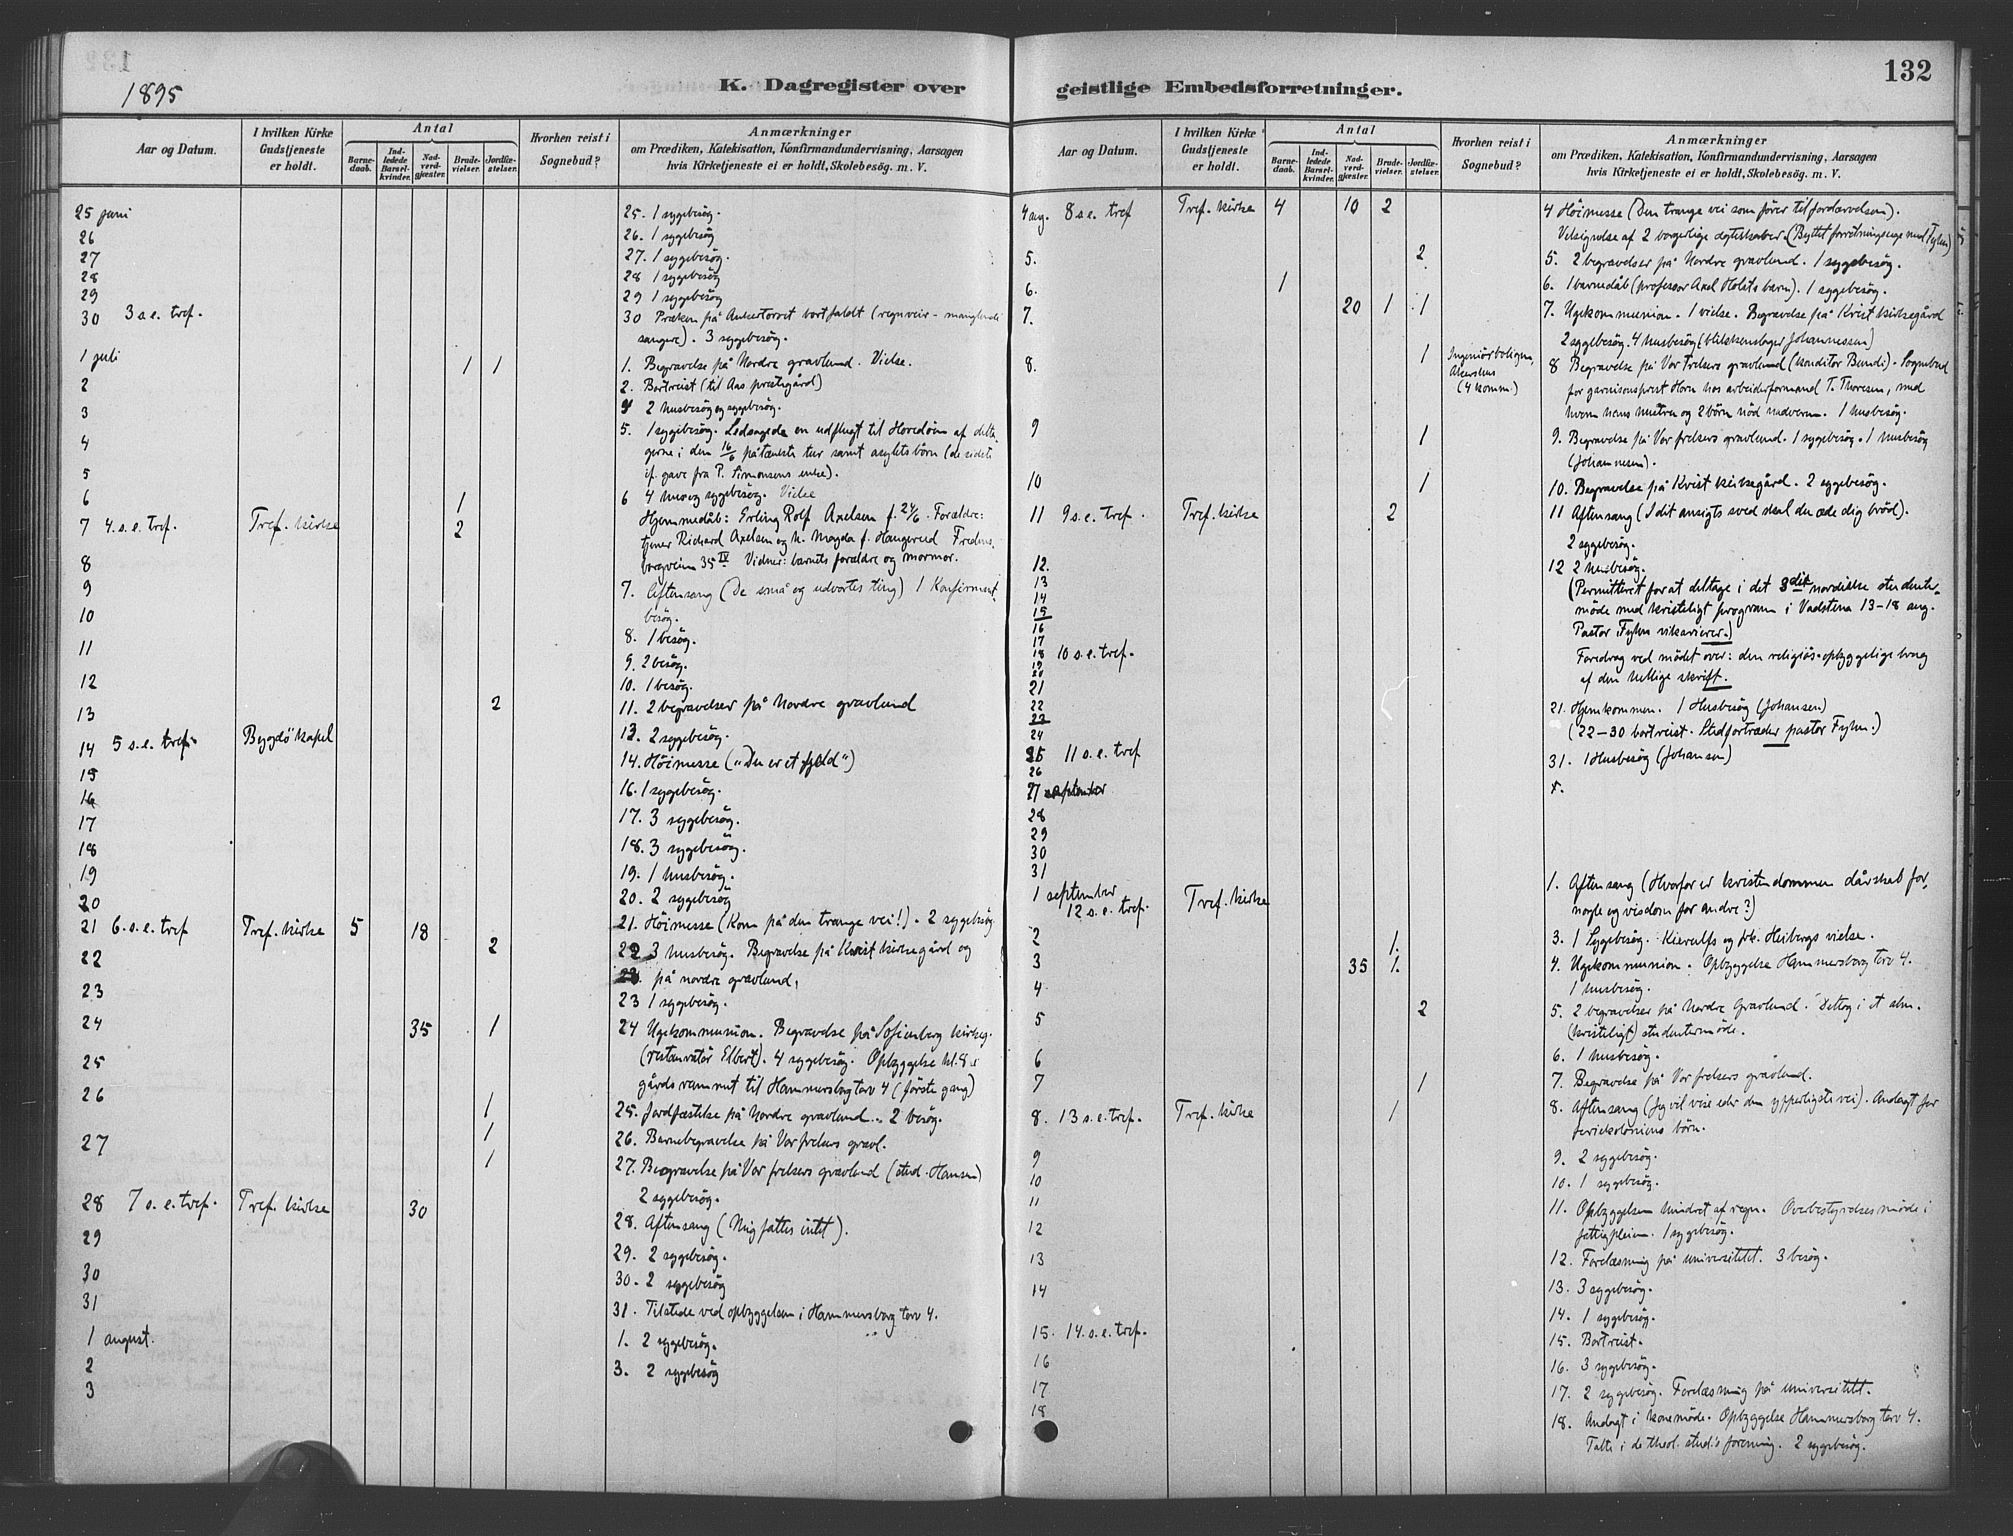 1895
K. Dagregister over
Aar og Datum.
I hvilken Kirke Gudstjeneste er holdt.
Antal
Barnedaab.
Indledede Barselkvinder.
Nadverdgjæster.
Brudevielser.
Jordfæstelser.
Hvorhen reist i Sognebud?
Anmærkninger
om Prædiken, Katekisation, Konfirmandundervisning, Aarsagen
hvis Kirketjeneste ei er holdt, Skolebesög. m. V.
25 juni
26
27
28
29
30 3 s.e. tref.
1 juli 1 1
2
3
4
5
6 1
7 4. s.e. tref. Tref. kirke 2
8
9
10
11
12
13 2
14 5 s.e. tref. Bygdö kapel
15
16
17
18
19
20
21 6. s.e. tref Tref. kirke 5 18
22 2
23
24 35 1
25
26 1
27 1
1
28 7 s.e. tref. Tref. kirke 30
29
30
31
1 august.
2
3
25. 1 sygebesög.
26. 1 sygebesög
27. 1 sygebesög.
28 1 sygebesög
29 1 sygebesög
30 Præken på Ankertorvet bortfaldt (regnveir - manglende
sangere). 3 sygebesög.
1. Begravelse på Nordre gravlund. Vielse.
2. Bortreist (til Aas præstegård)
4 2 husbesög og sygebesög.
5. 1 sygebesög. Ledsagede en udflugt til Hovedöen af delta-
gerne i den 16/6 påtænkte tur samt asylets börn (de sidste
gave fra P. Simonsens enke).
6 4 hus og sygebesög. Vielse
Hjemmedåb: Erling Rolf Axelsen f. 24/6. Forældre:
tjener Richard Axelsen og h. Magda f. Haugerud Fredens-
borgveien 35 IV. Vidner: barnets forældre og mormor.
7. Aftensang (De små og udvortes ting) 1 Konfirmant-
besög.
8. 1 besög.
9. 2 besög.
10. 1 besög.
11. 2 begravelser på Nordre gravlund
12. 2 sygebesög.
14. Höimesse („Du er et fjeld“)
16. 1 sygebesög.
17. 3 sygebesög.
18. 3 sygebesög.
19. 1 husbesög.
20. 2 sygebesög
21. Höimesse (Kom på den trange vei!). 2 sygebesög.
22 3 husbesög. Begravelse på Krist kirkegård og
på nordre gravlund.
23 1 sygebesög.
24 Ugekommunion. Begravelse på Sofienberg kirkeg.
(restauratör Elbert). 4 sygebesög. Opbyggelse kl. 8 i
gårdsrummet til Hammersborg torv 4 (förste gang)
25. Jordfæstelse på Nordre gravlund. 2 besög.
26. Barnebegravelse på Vor frelsers gravl.
27. Begravelse på Vor frelsers gravlund (stud. Hansen)
2 sygebesög.
28. Aftensang (Mig fattes intet).
29. 2 sygebesög.
30. 2 sygebesög
31. Tilstede ved opbyggelsen i Hammersborg torv 4.
1. 2 sygebesög.
3. 2 sygebesög
132
geistlige Embedsforretninger.
Aar og Datum.
I hvilken Kirke Gudstjeneste er holdt.
Antal
Barnedaab.
Indledede Barselkvinder.
Nadverdgjæster.
Brudevielser.
Jordfæstelser.
Hvorhen reist i Sognebud?
Anmærkninger
om Prædiken, Katekisation, Konfirmandundervisning, Aarsagen
hvis Kirketjeneste ei er holdt, Skolebesög. m. V.
4 aug. 8 s.e. tref Tref. kirke 4 10 2
5. 2
6. 1
7. 20 1 1
8. 1 Ingeniörboligen, Akershus (4 komm)
9 1
10 1
11 9 s.e. tref. Tref. kirke 2
12.
13
14
15
16
17
18 10 s.e. tref.
19
20
21
22
23
24
25 11 s.e. tref
26
27 september
28
29
30
31
1 september
12 s.e. tref. Tref. kirke
2 1.
3 35 1.
4
5 2
6
7 1
8. 13 s.e. tref. Tref. kirke 1
9
10
11
12
13
14
15. 14. s.e. tref.
16
17
18
4 Höimesse (Den trange vei som förer til fordærvelsen).
Velsignelse af 2 borgerlige ægteskaber. (Byttet forretningsuge med Fyhn)
5. 2 begravelser på Nordre gravlund. 1 sygebesög.
6. 1 barnedåb (professor Axel Holsts barn). 1 sygebesög.
7. Ugekommunion. 1 vielse. Begravelse på Krist kirkegård
2 sygebesög. 4 husbesög (blikkenslager Johannessen)
8 Begravelse på Vor Frelsers gravlund (konditor Bundi). Sognebud
for garnisonsprest Horn hos arbeiderformand T. Thoresen, med
hvem hans hustru og 2 börn nöd nadveren. 1 husbesög.
9. Begravelse på Vor frelsers gravlund. 1 sygebesög. 1 husbesög
(Johannesen).
10. Begravelse på Krist kirkegård. 2 sygebesög.
11 Aftensang (I dit ansigts sved skal du æde dig bröd).
2 sygebesög.
12 2 husbesög.
(Permitteret for at deltage i det 3die nordiske studenter-
möde med kristeligt program i Vadstena 13-18 aug.
Pastor Fyhn vikarierer.)
Foredrag ved mödet over: den religiös-opbyggelige brug
af den hellige skrift.
21. Hjemkommen. 1 Husbesög (Johansen)
(22-30 bortreist. Stedfortræder pastor Fyhn.)
31. 1 Husbesög (Johansen)
1. Aftensang (Hvorfor er kristendommen dårskab for,
nogle og visdom for andre?)
3. 1 Sygebesög. Kierulfs og frk. Heibergs vielse.
4. Ugekommunion. Opbyggelse Hammersborg torv 4.
1 husbesög.
5. 2 begravelser på Nordre Gravlund. Deltog i et alm.
(kristeligt) studentermöde.
6. 1 husbesög.
7. Begravelse på Vor frelsers gravlund.
8. Aftensang (Jeg vil vise eder den ypperligste vei). Andagt for
feriekoloniens börn.
9. 2 sygebesög.
10. 1 sygebesög.
11. Opbyggelsen hindret af regn. Overbestyrelsesmöde i
fattigpleien. 1 sygebesög.
12. Forelæsning på universitetet. 3 besög.
13. 3 sygebesög.
14. 1 sygebesög.
15. Bortreist.
16. 3 sygebesög.
17. 2 sygebesög. Forelæsning på universitetet.
18. Andagt i konemöde. Opbyggelse Hammersborg torv 4.
Talte i de theol. stud.s forening. 2 sygebesög.